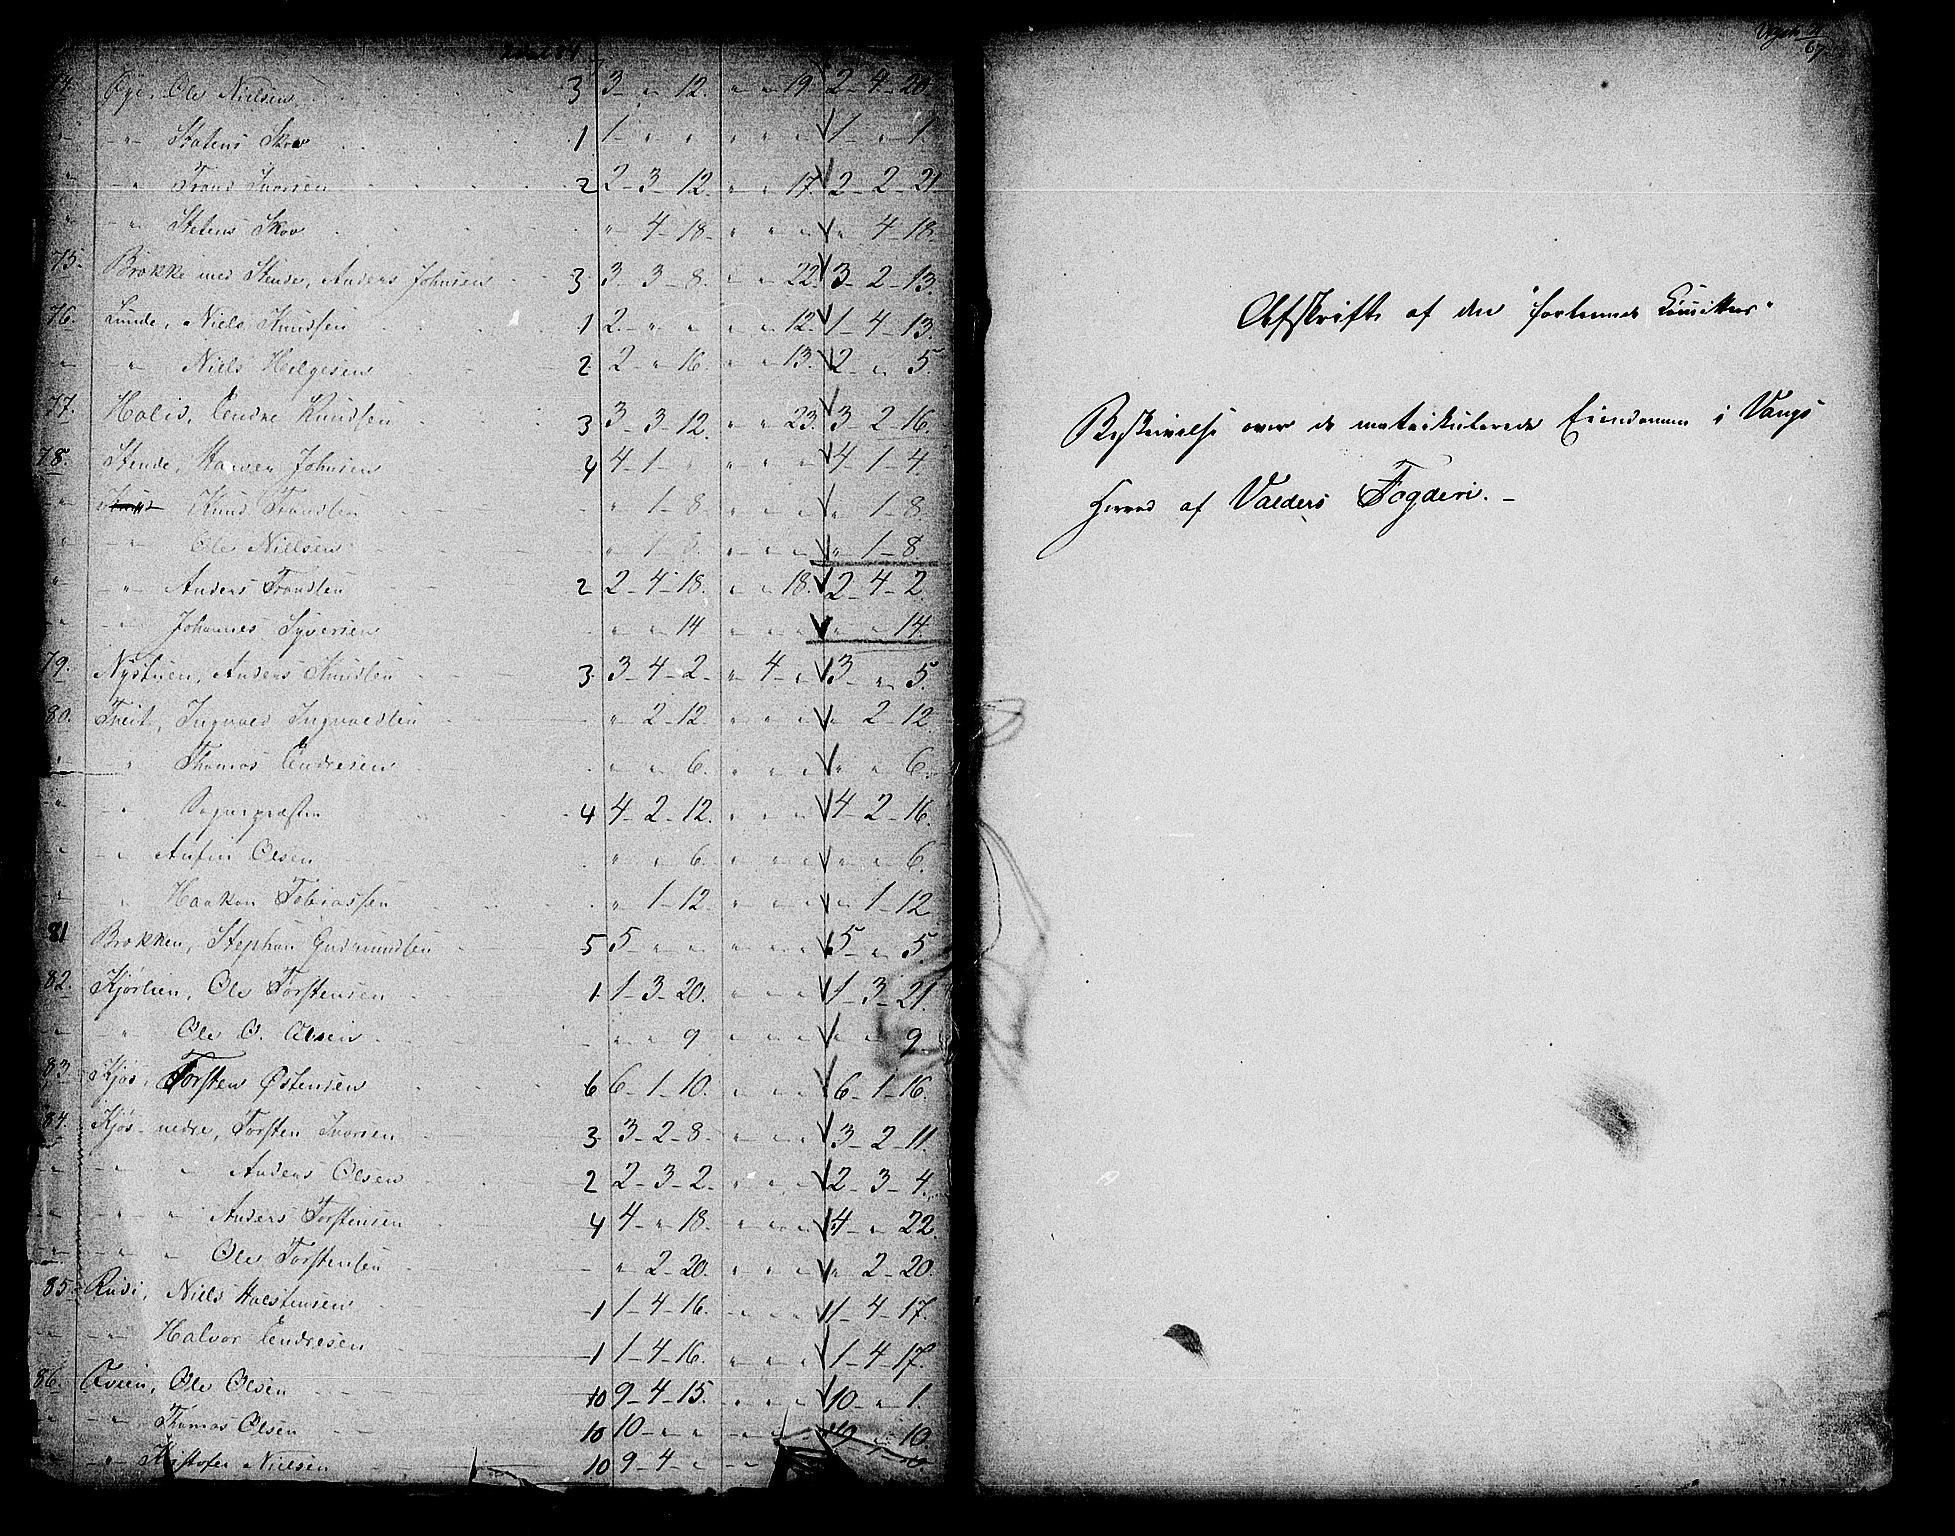 74. Øye, Ole Nielsen 3 3 – " – 12. " " 19. 2 – 4 – 20.
" – " Statens Skov 1 1 – " " " " " 1 – " – 1.
" – " Trond Ivorsen 2 2 – 3 – 12. " " 17. 2 – 2 – 21
" – " Statens Skov " 4 – 18. " " " " 4 – 18.
75. Brøkke med Stende, Anders Johnsen 3 3 – 3 – 8. " " 22. 3 – 2 – 13.
76. Lunde, Niels Knudsen 1 2 – " " " " 12. 1 – 4 – 13.
" " Niels Helgesen 2 2 – " 16. " " 13. 2 – " 5.
77. Holis, Endre Knudsen 3 3 – 3 – 12. " " 23. 3 – 2 – 16.
78. Stende, Johnsen 4 4 – 1 – " " " " 4 – 1 – 4
" Knud Trondsen " 1 – 8. " " " " 1 – 8.
" – " Ole Nielsen " 1 – 8. " " " " 1 – 8.
" – " Anders Trondsen 2 2 – 4 – 18. " " 18. 2 – 4 – 2.
" – " Johannes Syversen " " 14 " " " " " 14.
79. Nystuen, Anders Knudsen 3. 3 – 4 – 2. " 4 – " 3 – " 5.
80. Tveit, Ingvald Ingvaldsen " 2 – 12. " " " " 2 – 12.
" " Thomas Endresen " " 6. " " " " " 6.
" " Sognepræsten 4 4 – 2 – 12. " " " 4 – 2 – 16.
" – " Anfin Olsen " " 6. " " " " " 6.
" – " Haakon Tobiassen " 1 – 12. " " " " 1 – 12.
81 Brøkken, Stephan Gudmundsen 5 5 – " " " " " 5 – " 5.
82. Kjørlien, Ole Torstensen 1. 1 – 3 – 20. " " " 1 – 3 – 21.
" " Ole O. Olsen " " 9 " " " " " 9
83. Kjøs, Torsten Østensen 6 6 – 1 – 10. " " " 6 – 1 – 16.
84. Kjøs nedre, Torsten Ivorsen 3. 3 – 2 – 8. " " " 3 – 2 – 11.
" " " Anders Olsen 2 2 – 3 – 2. " " " 2 – 3 – 4.
" " " Anders Torstensen 4 4 – " 18. " " " 4 – " 22.
" " " Ole Torstensen " 2 – 20. " " " " 2 – 20.
85. Rudi, Niels Halstensen 1 1 – 4 – 16. " " " 1 – 4 – 17.
" " Halvor Endresen 1 1 – 4 – 16. " " " 1 – 4 – 17.
86. Kvien, Ole Olsen 10 9 – 4 – 15. " " " 10 – " 1.
" " Thomas Olsen 10 10 – " " " " " 10 " 10.
" " Kristofer Nielsen 10 9 – 4 –
67
Afskrift af den "forteннede
Beskrivelse over de matrikulerede Eiendomme i Vangs
Herred af Valders Fogderi. –